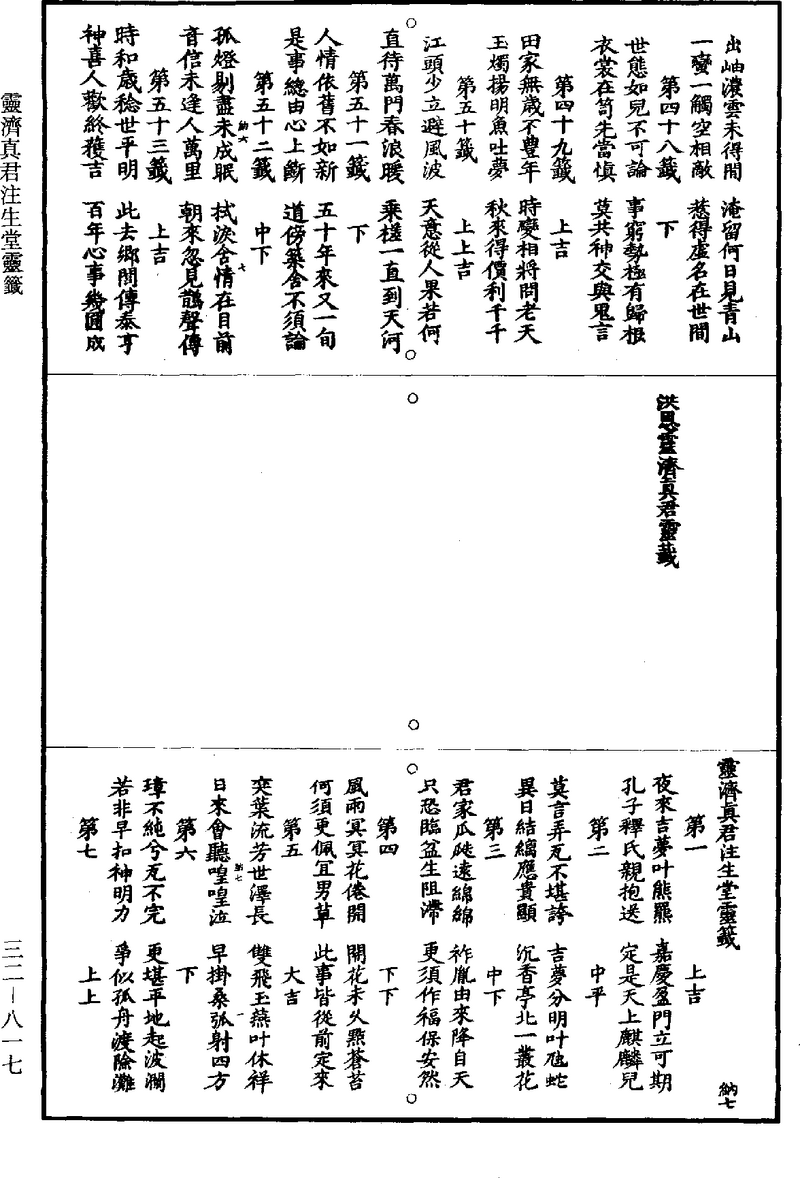 出岫濃雲未得閒　淹留何日見青山
一蠻一觸空相敵　惹得虛名在世間
第四十八籤　下
世態如兒不可論　事窮勢極有歸根
衣裳在笥先當慎　莫共神交與鬼言
第四十九籤　上吉
田家無歲不豐年　時變相將問老天
玉燭揚明魚吐夢　秋來得價利千千
第五十籤　上上吉
江頭少立避風波　天意從人果若何
直待萬門春浪暖　乘槎一直到天河
第五十一籤　下
人情依舊不如新　五十年來又一旬
是事總由心上斷　道傍築舍不須論
第五十二籤　中下
孤燈剔盡未成眠　拭淚含情在目前
音信未逢人萬里　朝來忽見鵲聲傳
第五十三籤　上吉
時和歲稔世平明　此去鄉閭傳泰亨
神喜人歡終獲吉　百年心事幾圓成
洪恩靈濟真君靈籤
靈濟真君注生堂靈籤
第一　上吉
夜來吉夢叶熊羆　嘉慶盈門立可期
孔子釋氏親抱送　定是天上麒麟兒
第二　中平
莫言弄瓦不堪誇　吉夢分明叶虺蛇
異日結縭應貴顯　沉香亭北一叢花
第三　中下
君家瓜瓞遠綿綿　祚胤由來降自天
只恐臨盆生阻滯　更須作福保安然
第四　下下
風雨冥冥花倦開　開花未久點蒼苔
何須更佩宜男草　此事皆從前定來
第五　大吉
奕葉流芳世澤長　雙飛玉燕叶休祥
日來會聽喤喤泣　早掛桑弧射四方
第六　下
璋不純兮瓦不完　更堪平地起波瀾
若非早扣神明力　爭似孤舟渡險灘
第七　上上
納七
靈濟真君注生堂靈籤
三二－八一七